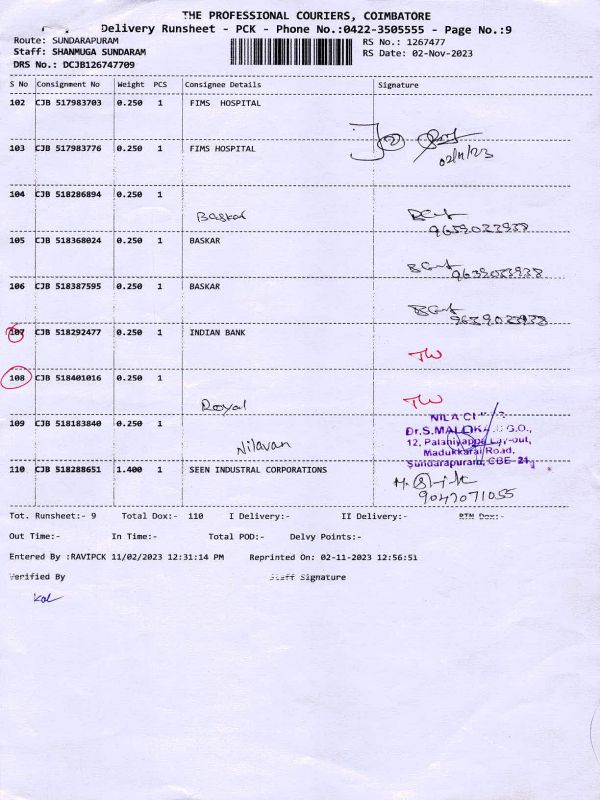 THE PROFESSIONAL COURIERS, COIMBATORE
Delivery Runsheet - PCK - Phone No.:0422-3505555 - Page No.:9
Route: SUNDARAPURAM RS No.: 1267477
Staff: SHANMUGA SUNDARAM RS Date: 02-Nov-2023
DRS No.: DCJB126747709
S No Consignment No Weight PCS Consignee Details Signature
102 CJB 517983703 0.250 1 FIMS HOSPITAL
103 CJB 517983776 0.250 1 FIMS HOSPITAL
02/11/23
104 CJB 518286894 0.250 1
Baskar
9659023938
105 CJB 518368024 0.250 1 BASKAR
9659023938
106 CJB 518387595 0.250 1 BASKAR
9659023938
107 CJB 518292477 0.250 1 INDIAN BANK
TW
108 CJB 518401016 0.250 1
Royal TW
109 CJB 518183840 0.250 1
Nilavan
NILA
Dr.S.
12, Palaniyappa Lay-out,
Madukkarai Road,
Sundarapuram, CBE-24
110 CJB 518288651 1.400 1 SEEN INDUSTRAL CORPORATIONS
9047071055
Tot. Runsheet:- 9 Total Dox:- 110 I Delivery:- II Delivery:- RTN Dox:-
Out Time:- In Time:- Total POD:- Delvy Points:-
Entered By :RAVIPCK 11/02/2023 12:31:14 PM Reprinted On: 02-11-2023 12:56:51
Verified By Staff Signature